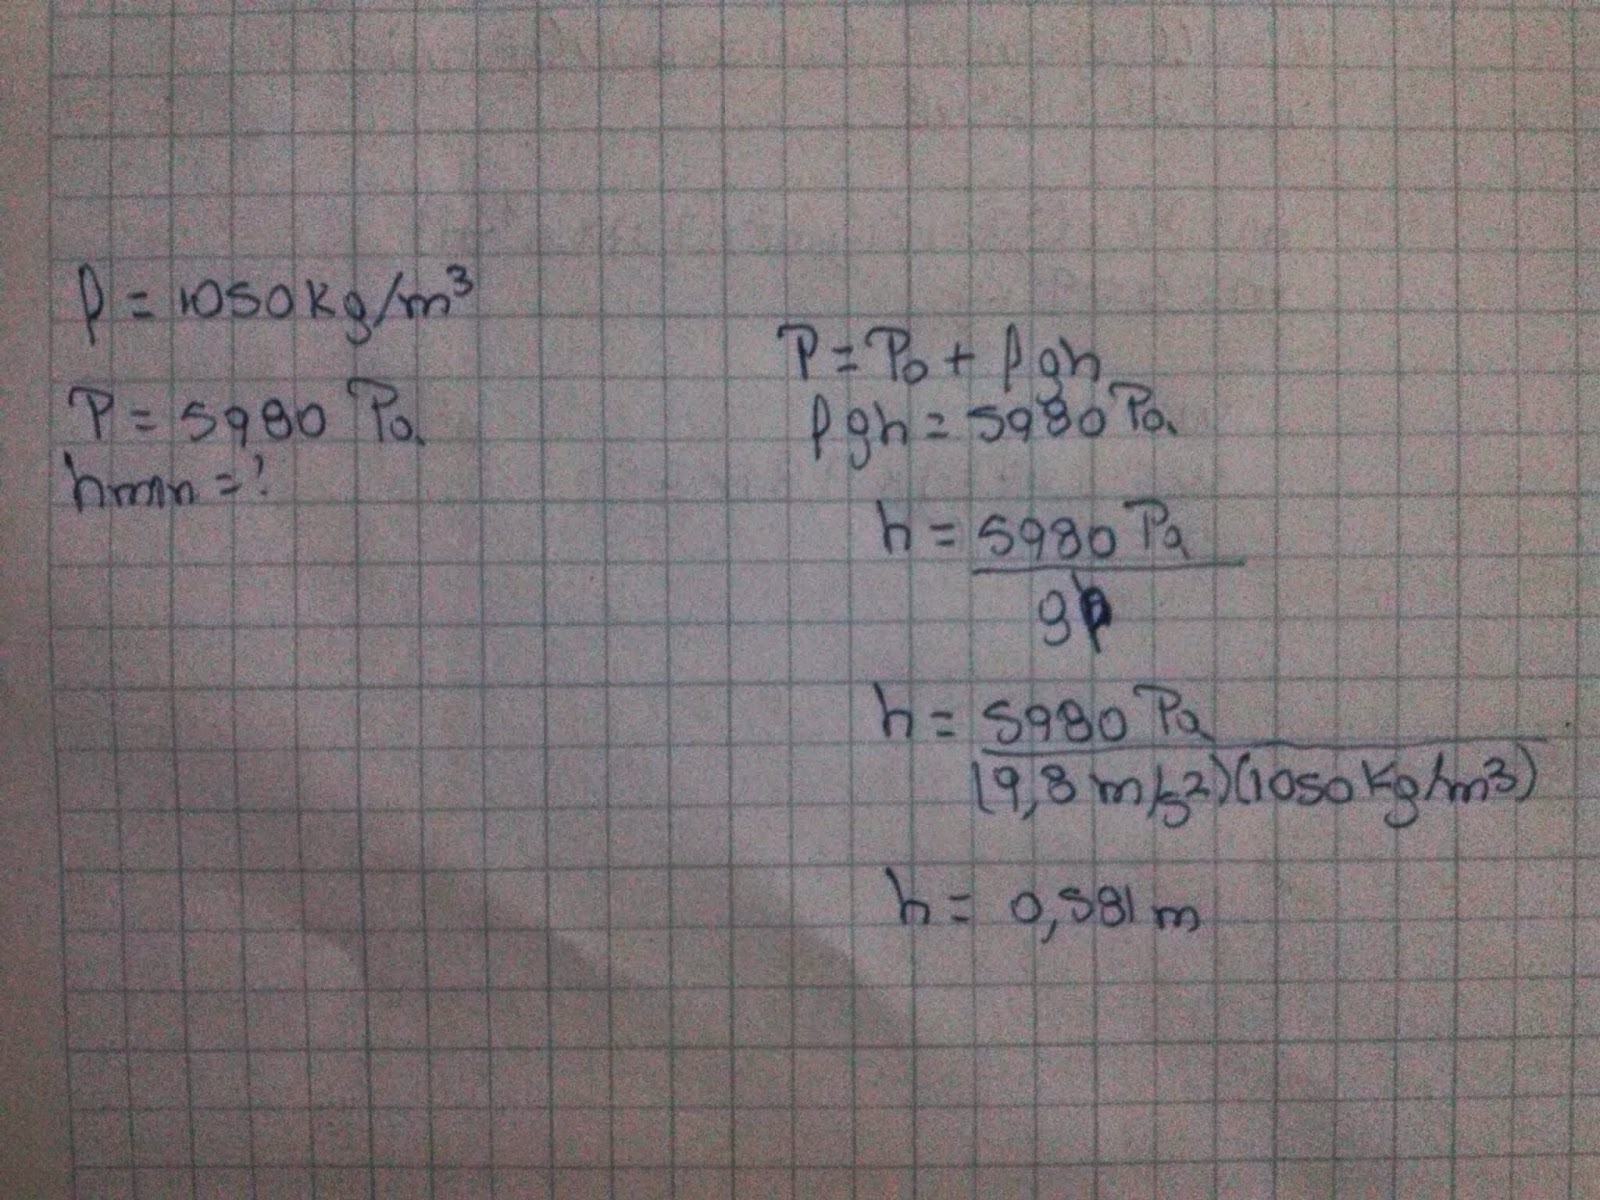 ρ = 1050 kg/m³
P = 5980 Pa
hmin = ?
P = P₀ + ρgh
ρgh = 5980 Pa
h = 5980 Pa
gρ
h = 5980 Pa
(9,8 m/s²)(1050 kg/m³)
h = 0,581 m